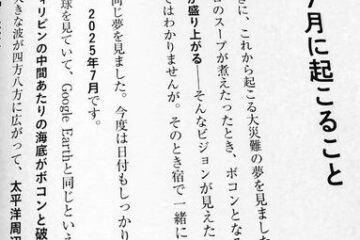 7月に起こること
きに、これから起こる大災難の夢を見まし
のスープが煮えたったとき、ボコンとな
が盛り上がる──そんなビジョンが見えた
ではわかりませんが。そのとき宿で一緒に
同じ夢を見ました。今度は日付もしっかり
2025年7月です。
球を見ていて、Google Earthと同じといえ
ィリピンの中間あたりの海底がボコンと破
大きな波が四方八方に広がって、太平洋周辺